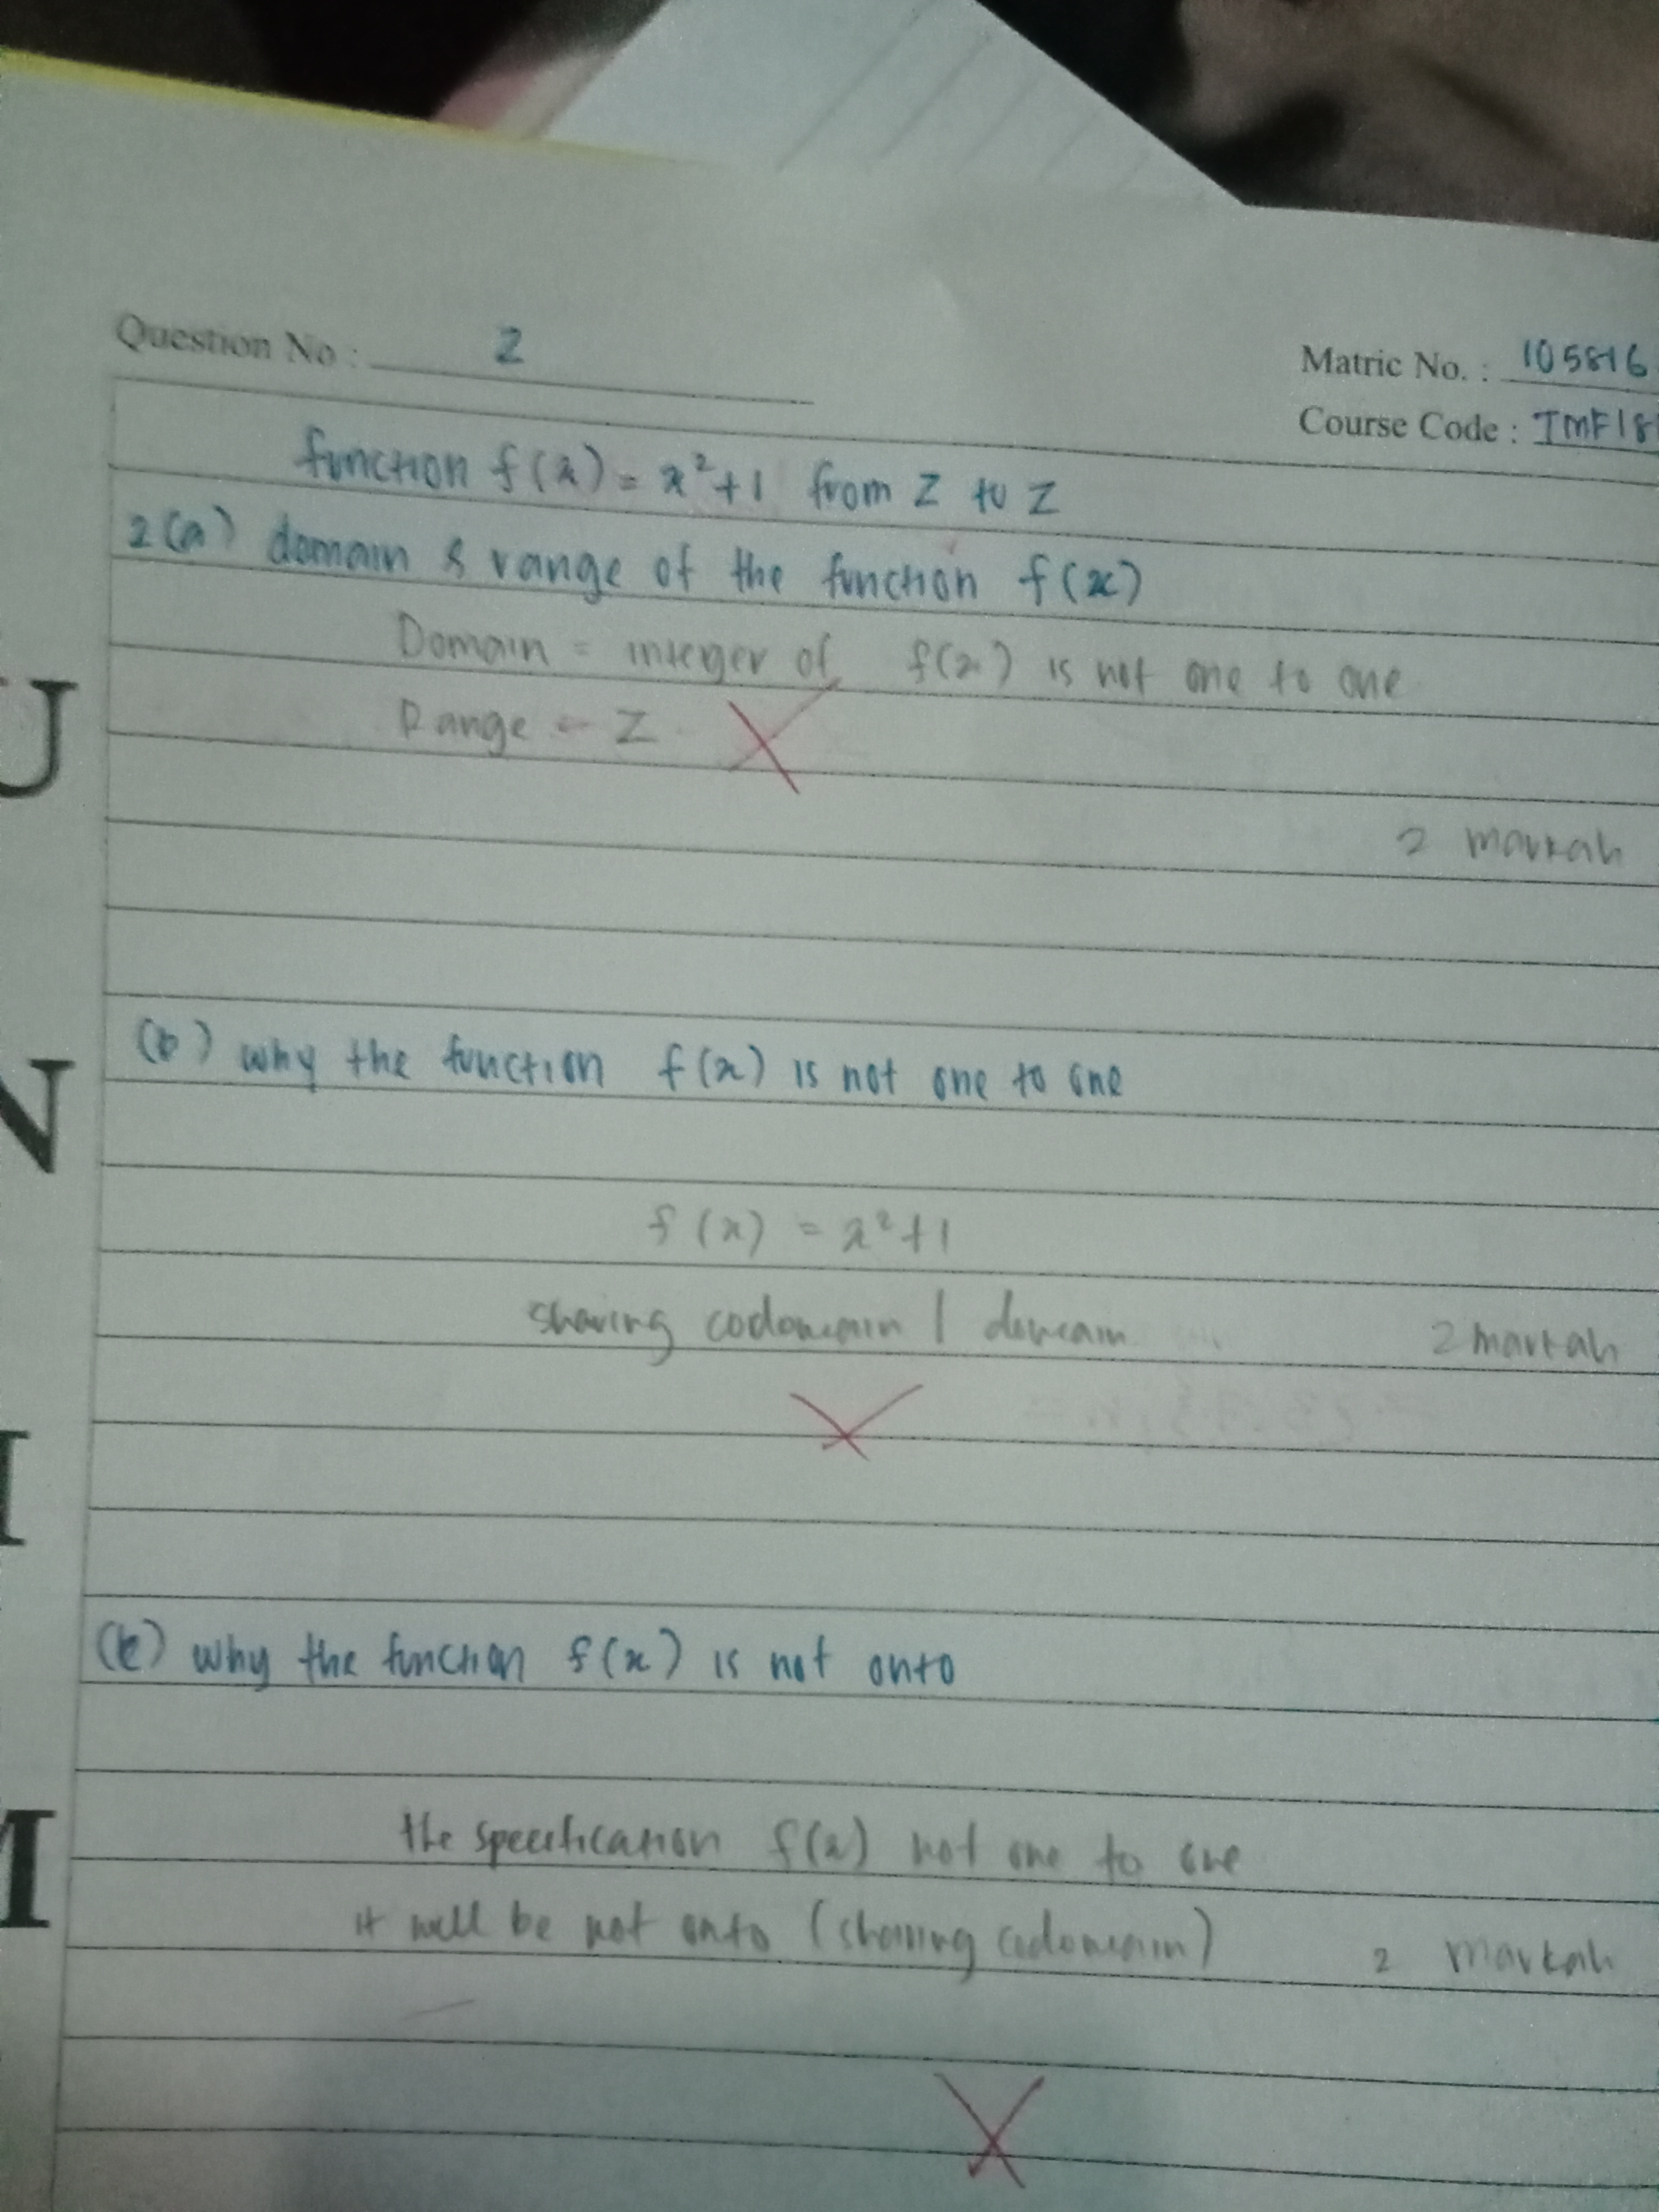 Question No : 2
Matric No. : 105816
Course Code : TMF18
function f(x) = x²+1 from Z to Z
2(a) domain & range of the function f(x)
Domain = integer of f(x) is not one to one
Range = Z
2 markah
(b) why the function f(x) is not one to one
f(x) = x²+1
sharing codomain / domain
2 markah
(c) why the function f(x) is not onto
the specification f(x) not one to one
it will be not onto (sharing codomain)
2 markah
U
N
I
M